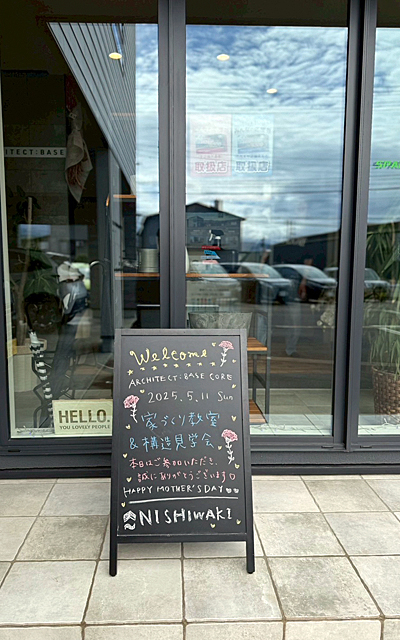 ITECT:BASE
取扱店
取扱店
HELLO.
YOU LOVELY PEOPLE
Welcome
ARCHITECT:BASE CORE
2025.5.11 Sun
家づくり教室
&構造見学会
本日はご参加いただき、
誠にありがとうございます
HAPPY MOTHER'S DAY
NISHIWAKI